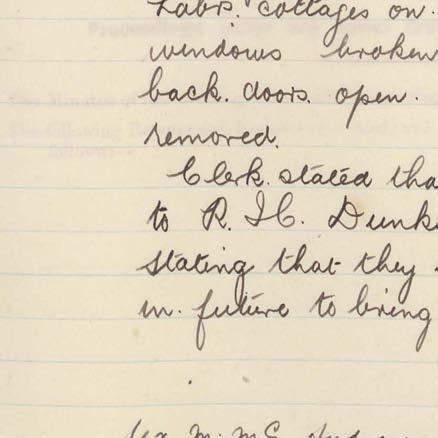 Labrs. cottages on
windows broken
back. doors. open.
removed.
Clerk. stated tha
to R. I C. Dunk
stating that they
in. future to bring